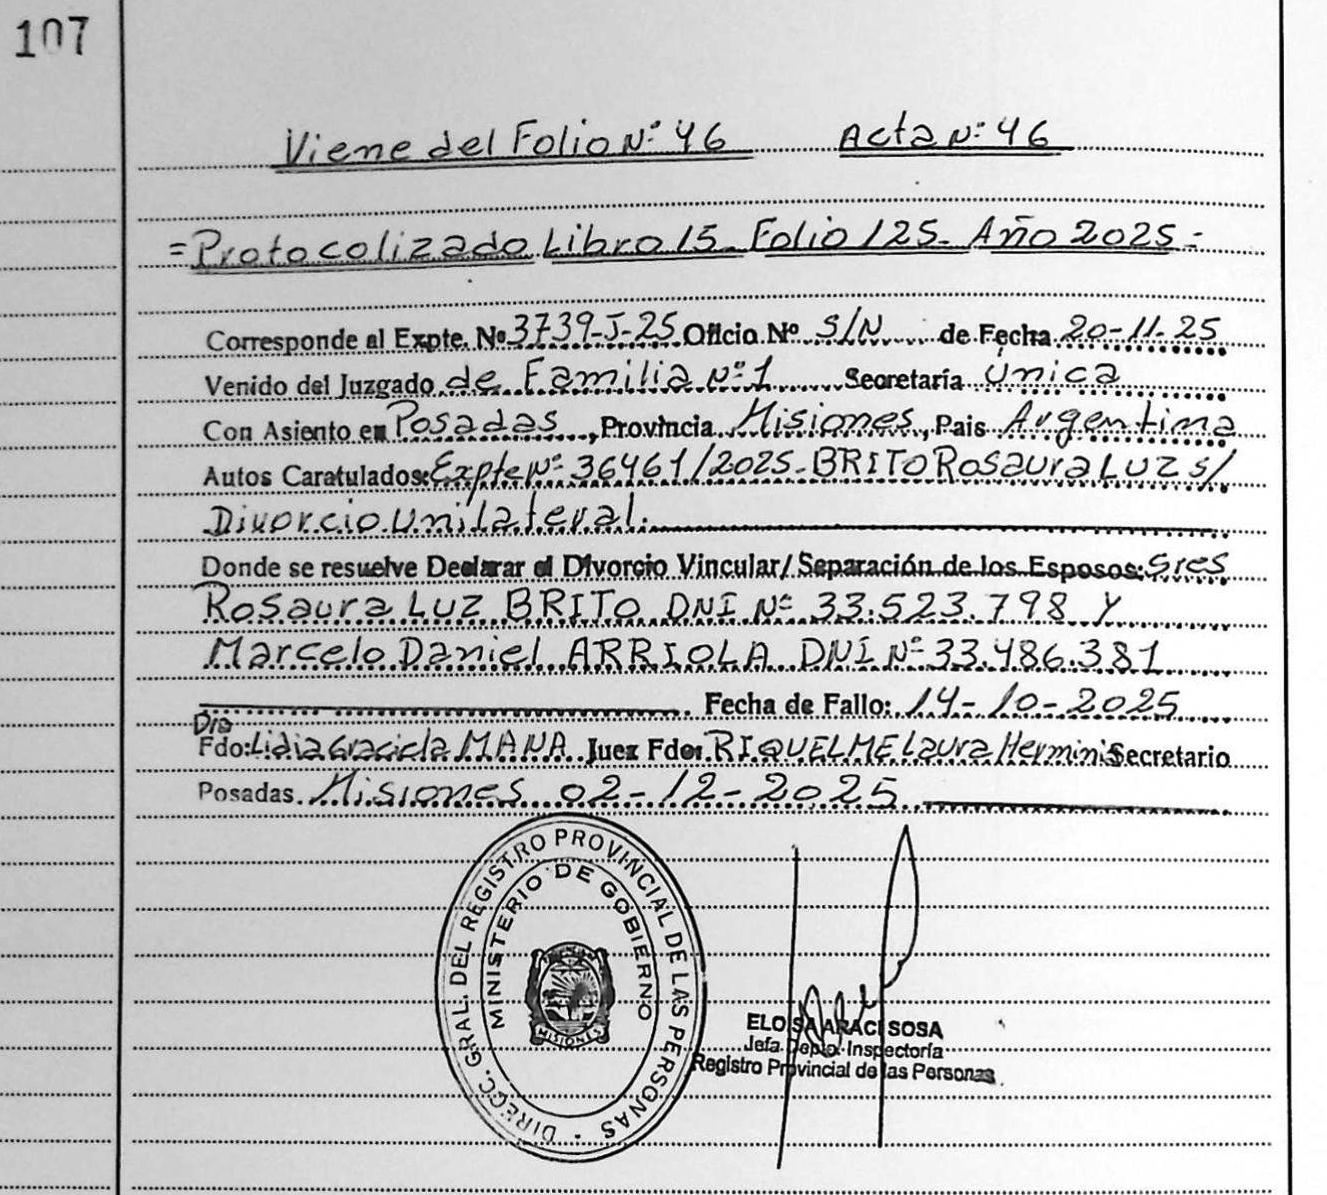 107
Viene del Folio Nº 46 Acta Nº 46
=Protocolizado Libro 15 Folio 125- Año 2025-
Corresponde al Expte. Nº 3739-J-25 Oficio Nº S/N de Fecha 20-11-25
Venido del Juzgado de Familia Nº 1 Secretaría única
Con Asiento en Posadas, Provincia Misiones, Pais Argentina
Autos Caratulados: Expte Nº 36461/2025- BRITO Rosaura Luz s/
Divorcio Unilateral.
Donde se resuelve Declarar el Divorcio Vincular/ Separación de los Esposos: Sres
Rosaura Luz BRITO DNI Nº 33.523.798 y
Marcelo Daniel ARRIOLA DNI Nº 33.486.381
Fecha de Fallo: 14-10-2025
Dra
Fdo: Lidia Graciela MANA Juez Fdo: RIQUELME Laura Hermini Secretario
Posadas Misiones 02-12-2025
DIRECC. GRAL. DEL REGISTRO PROVINCIAL DE LAS PERSONAS
MINISTERIO DE GOBIERNO
MISIONES
ELOISA ARACI SOSA
Jefa Depto. Inspectoría
Registro Provincial de las Personas